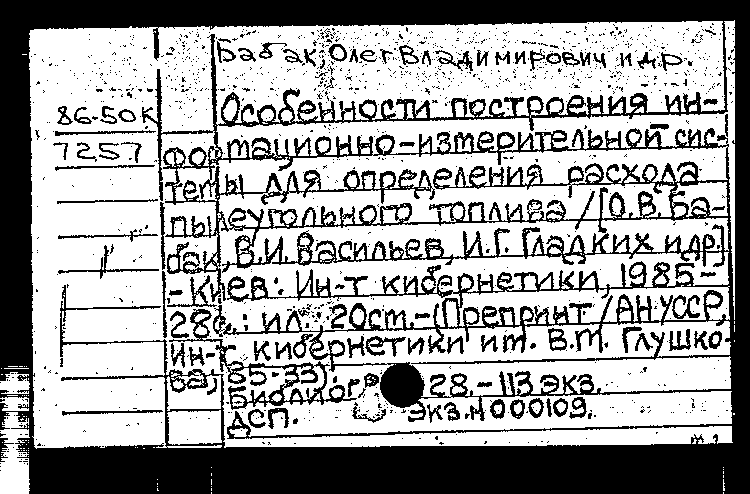 Бабак, Олег Владимирович и др.
86-50К
7257
Особенности построения ин-
формационно-измерительной сис-
темы для определения расхода
пылеугольного топлива / [О.В. Ба-
бак, В.И. Васильев, И.Г. Гладких и др.]
- Киев: Ин-т кибернетики, 1985 -
28с.: ил., 20см. - (Препринт / АН УССР,
Ин-т кибернетики им. В.М. Глушко-
ва; 85-33).
Библиогр 28. - 113 экз.
ДСП. Экз. N 000109.